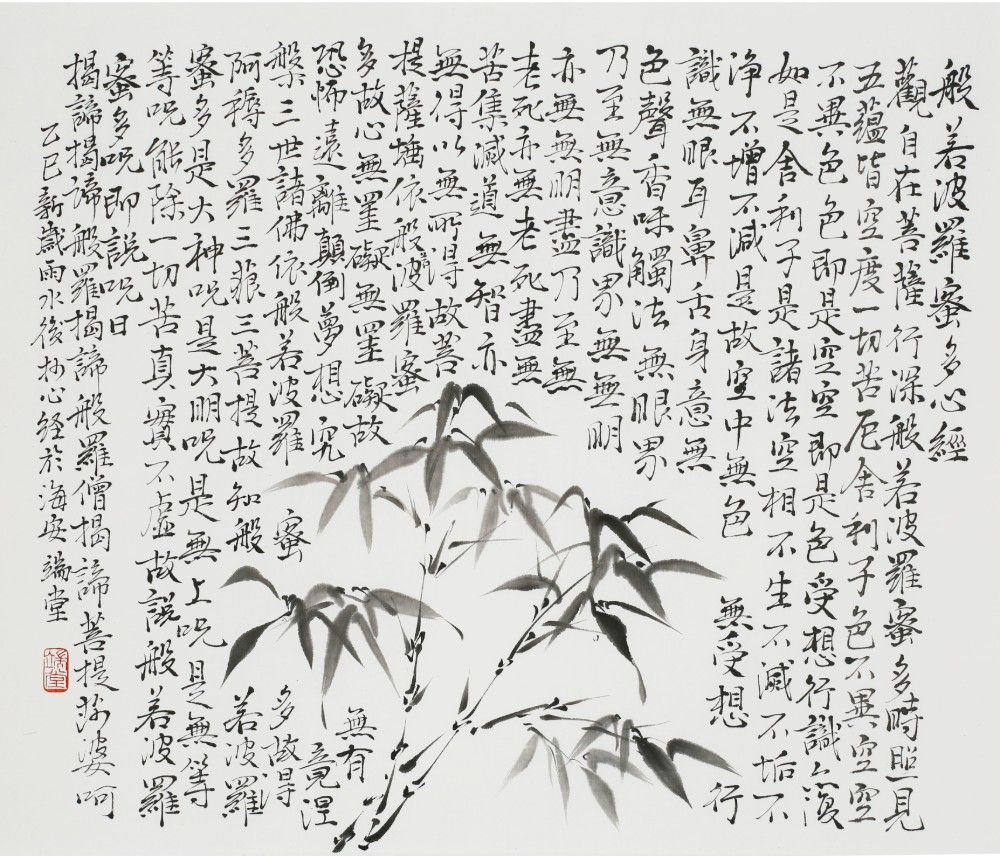 般若波羅蜜多心經
觀自在菩薩行深般若波羅蜜多時照見
五蘊皆空度一切苦厄舍利子色不異空空
不異色色即是空空即是色受想行識亦復
如是舍利子是諸法空相不生不滅不垢不
浄不增不減是故空中無色無受想行
識無眼耳鼻舌身意無
色聲香味觸法無眼界
乃至無意識界無無明
亦無無明盡乃至無
老死亦無老死盡無
苦集滅道無智亦
無得以無所得故菩
提薩埵依般若波羅蜜
多故心無罣礙無罣礙故無有
恐怖遠離顛倒夢想究竟涅
槃三世諸佛依般若波羅蜜多故得
阿耨多羅三藐三菩提故知般若波羅
蜜多是大神呪是大明呪是無上呪是無等
等呪能除一切苦真實不虛故說般若波羅
蜜多呪即說呪曰
揭諦揭諦般羅揭諦般羅僧揭諦菩提娑婆呵
乙巳新歲雨水後抄心经於海安端堂
端堂